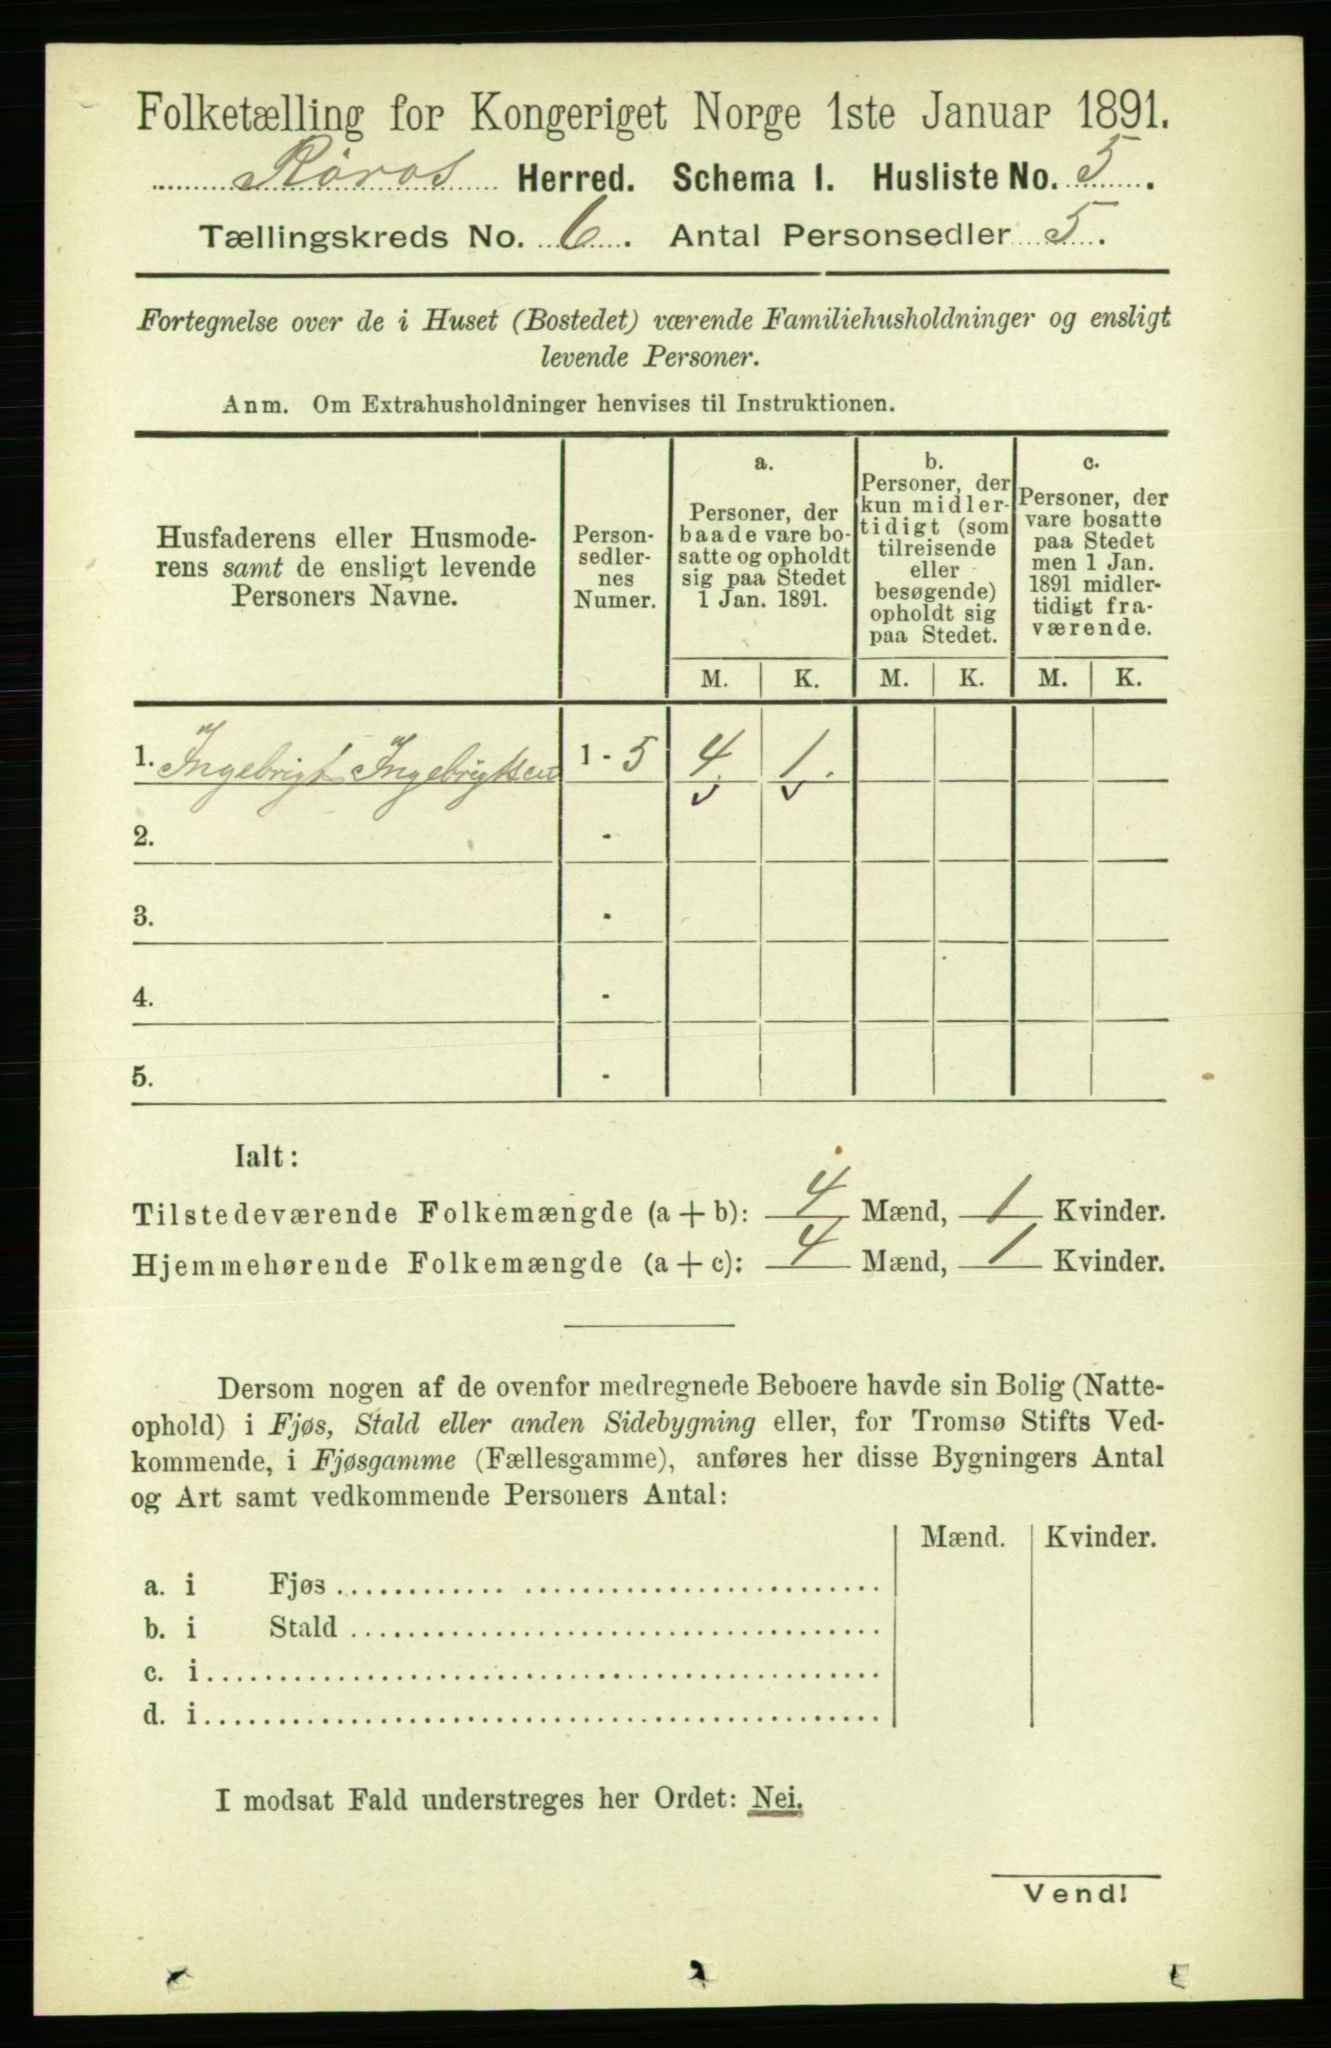 Folketælling for Kongeriget Norge 1ste Januar 1891.
Röros Herred. Schema I. Husliste No. 5.
Tællingskreds No. 6. Antal Personsedler 5.
Fortegnelse over de i Huset (Bostedet) værende Familiehusholdninger og ensligt
levende Personer.
Anm. Om Extrahusholdninger henvises til Instruktionen.
Husfaderens eller Husmode-
rens samt de ensligt levende
Personers Navne.
Person-
sedler-
nes
Numer.
a.
Personer, der
baade vare bo-
satte og opholdt
sig paa Stedet
1 Jan. 1891.
b.
Personer, der
kun midler-
tidigt (som
tilreisende
eller
besøgende)
opholdt sig
paa Stedet.
c.
Personer, der
vare bosatte
paa Stedet
men 1 Jan.
1891 midler-
tidigt fra-
værende.
M. K. M. K. M. K.
1. Ingebrigt Ingebrigtsen 1 - 5 4 1.
2. -
3. -
4. -
5. -
Ialt:
Tilstedeværende Folkemængde (a + b): 4 Mænd, 1 Kvinder.
Hjemmehørende Folkemængde (a + c): 4 Mænd, 1 Kvinder.
Dersom nogen af de ovenfor medregnede Beboere havde sin Bolig (Natte-
ophold) i Fjøs, Stald eller anden Sidebygning eller, for Tromsø Stifts Ved-
kommende, i Fjøsgamme (Fællesgamme), anføres her disse Bygningers Antal
og Art samt vedkommende Personers Antal:
Mænd. Kvinder.
a. i Fjøs
b. i Stald
c. i
d. i
I modsat Fald understreges her Ordet: Nei.
Vend!